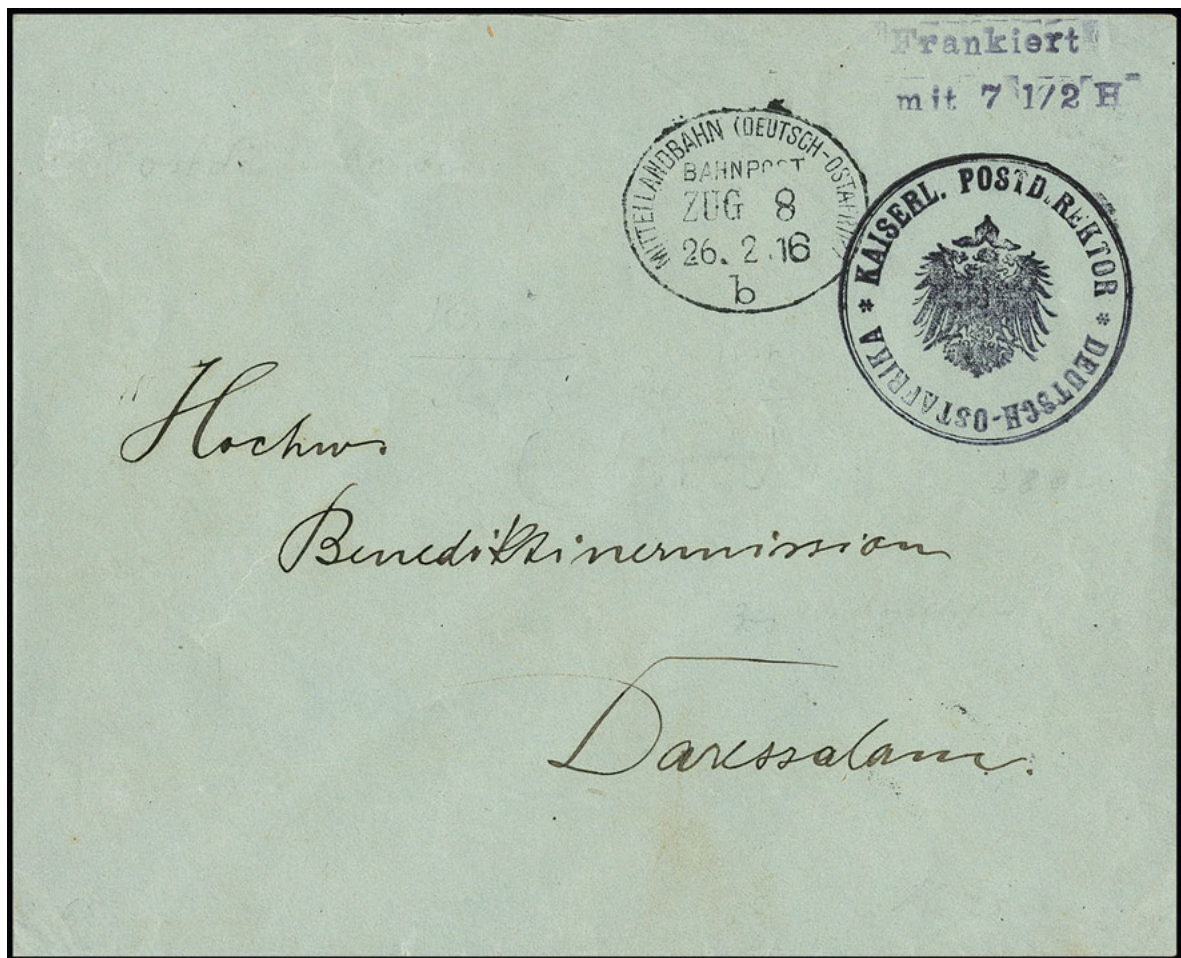 Frankiert
mit 7 1/2 H
MITTELLANDBAHN (DEUTSCH-OSTAFRIKA)
BAHNPOST
ZUG 8
26. 2. 16
b
* KAISERL. POSTDIREKTOR * DEUTSCH-OSTAFRIKA
Hochw.
Benediktinermission
Daressalam.